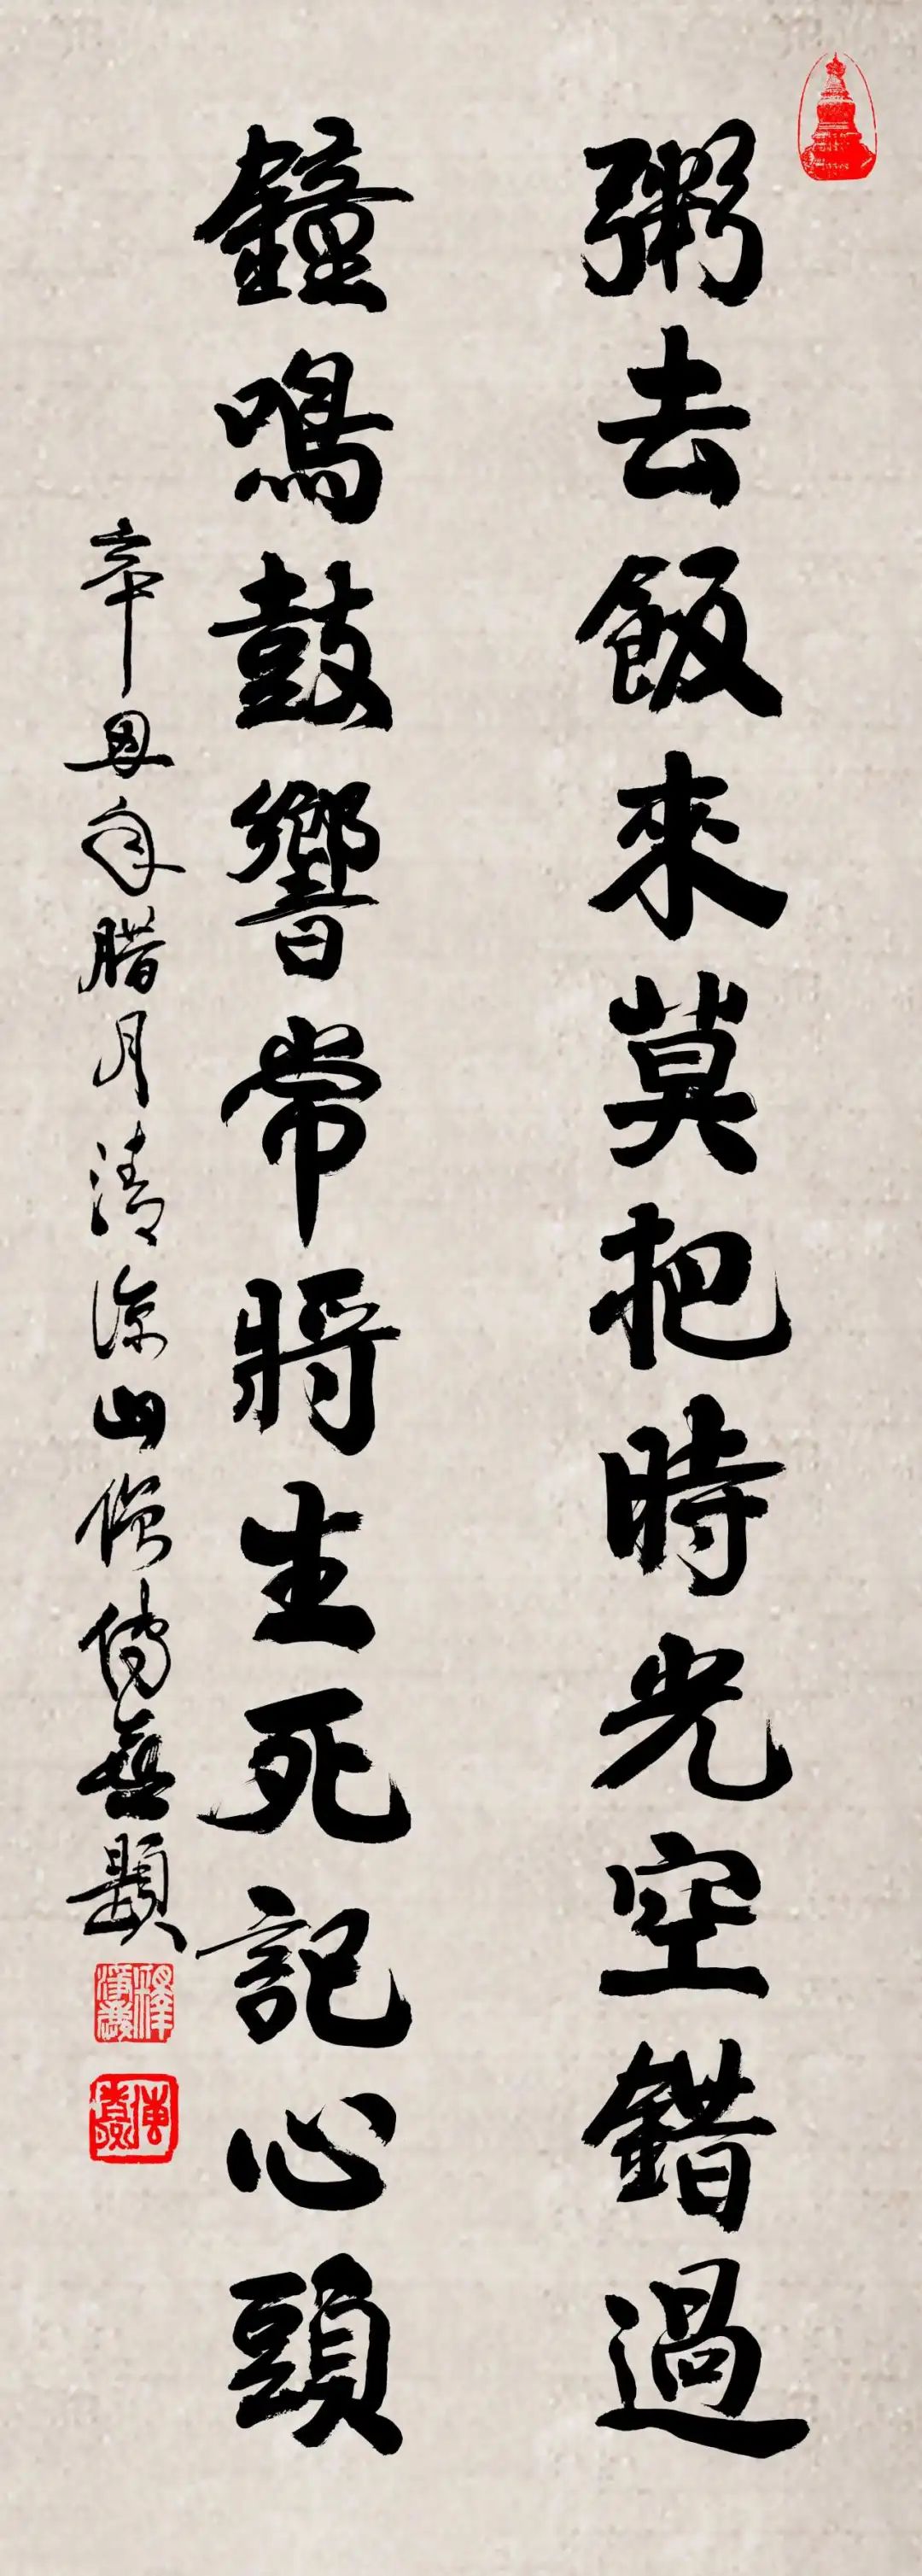 粥去飯來莫把時光空錯過
鐘鳴鼓響常將生死記心頭
辛丑年腊月清凉山僧傳無題